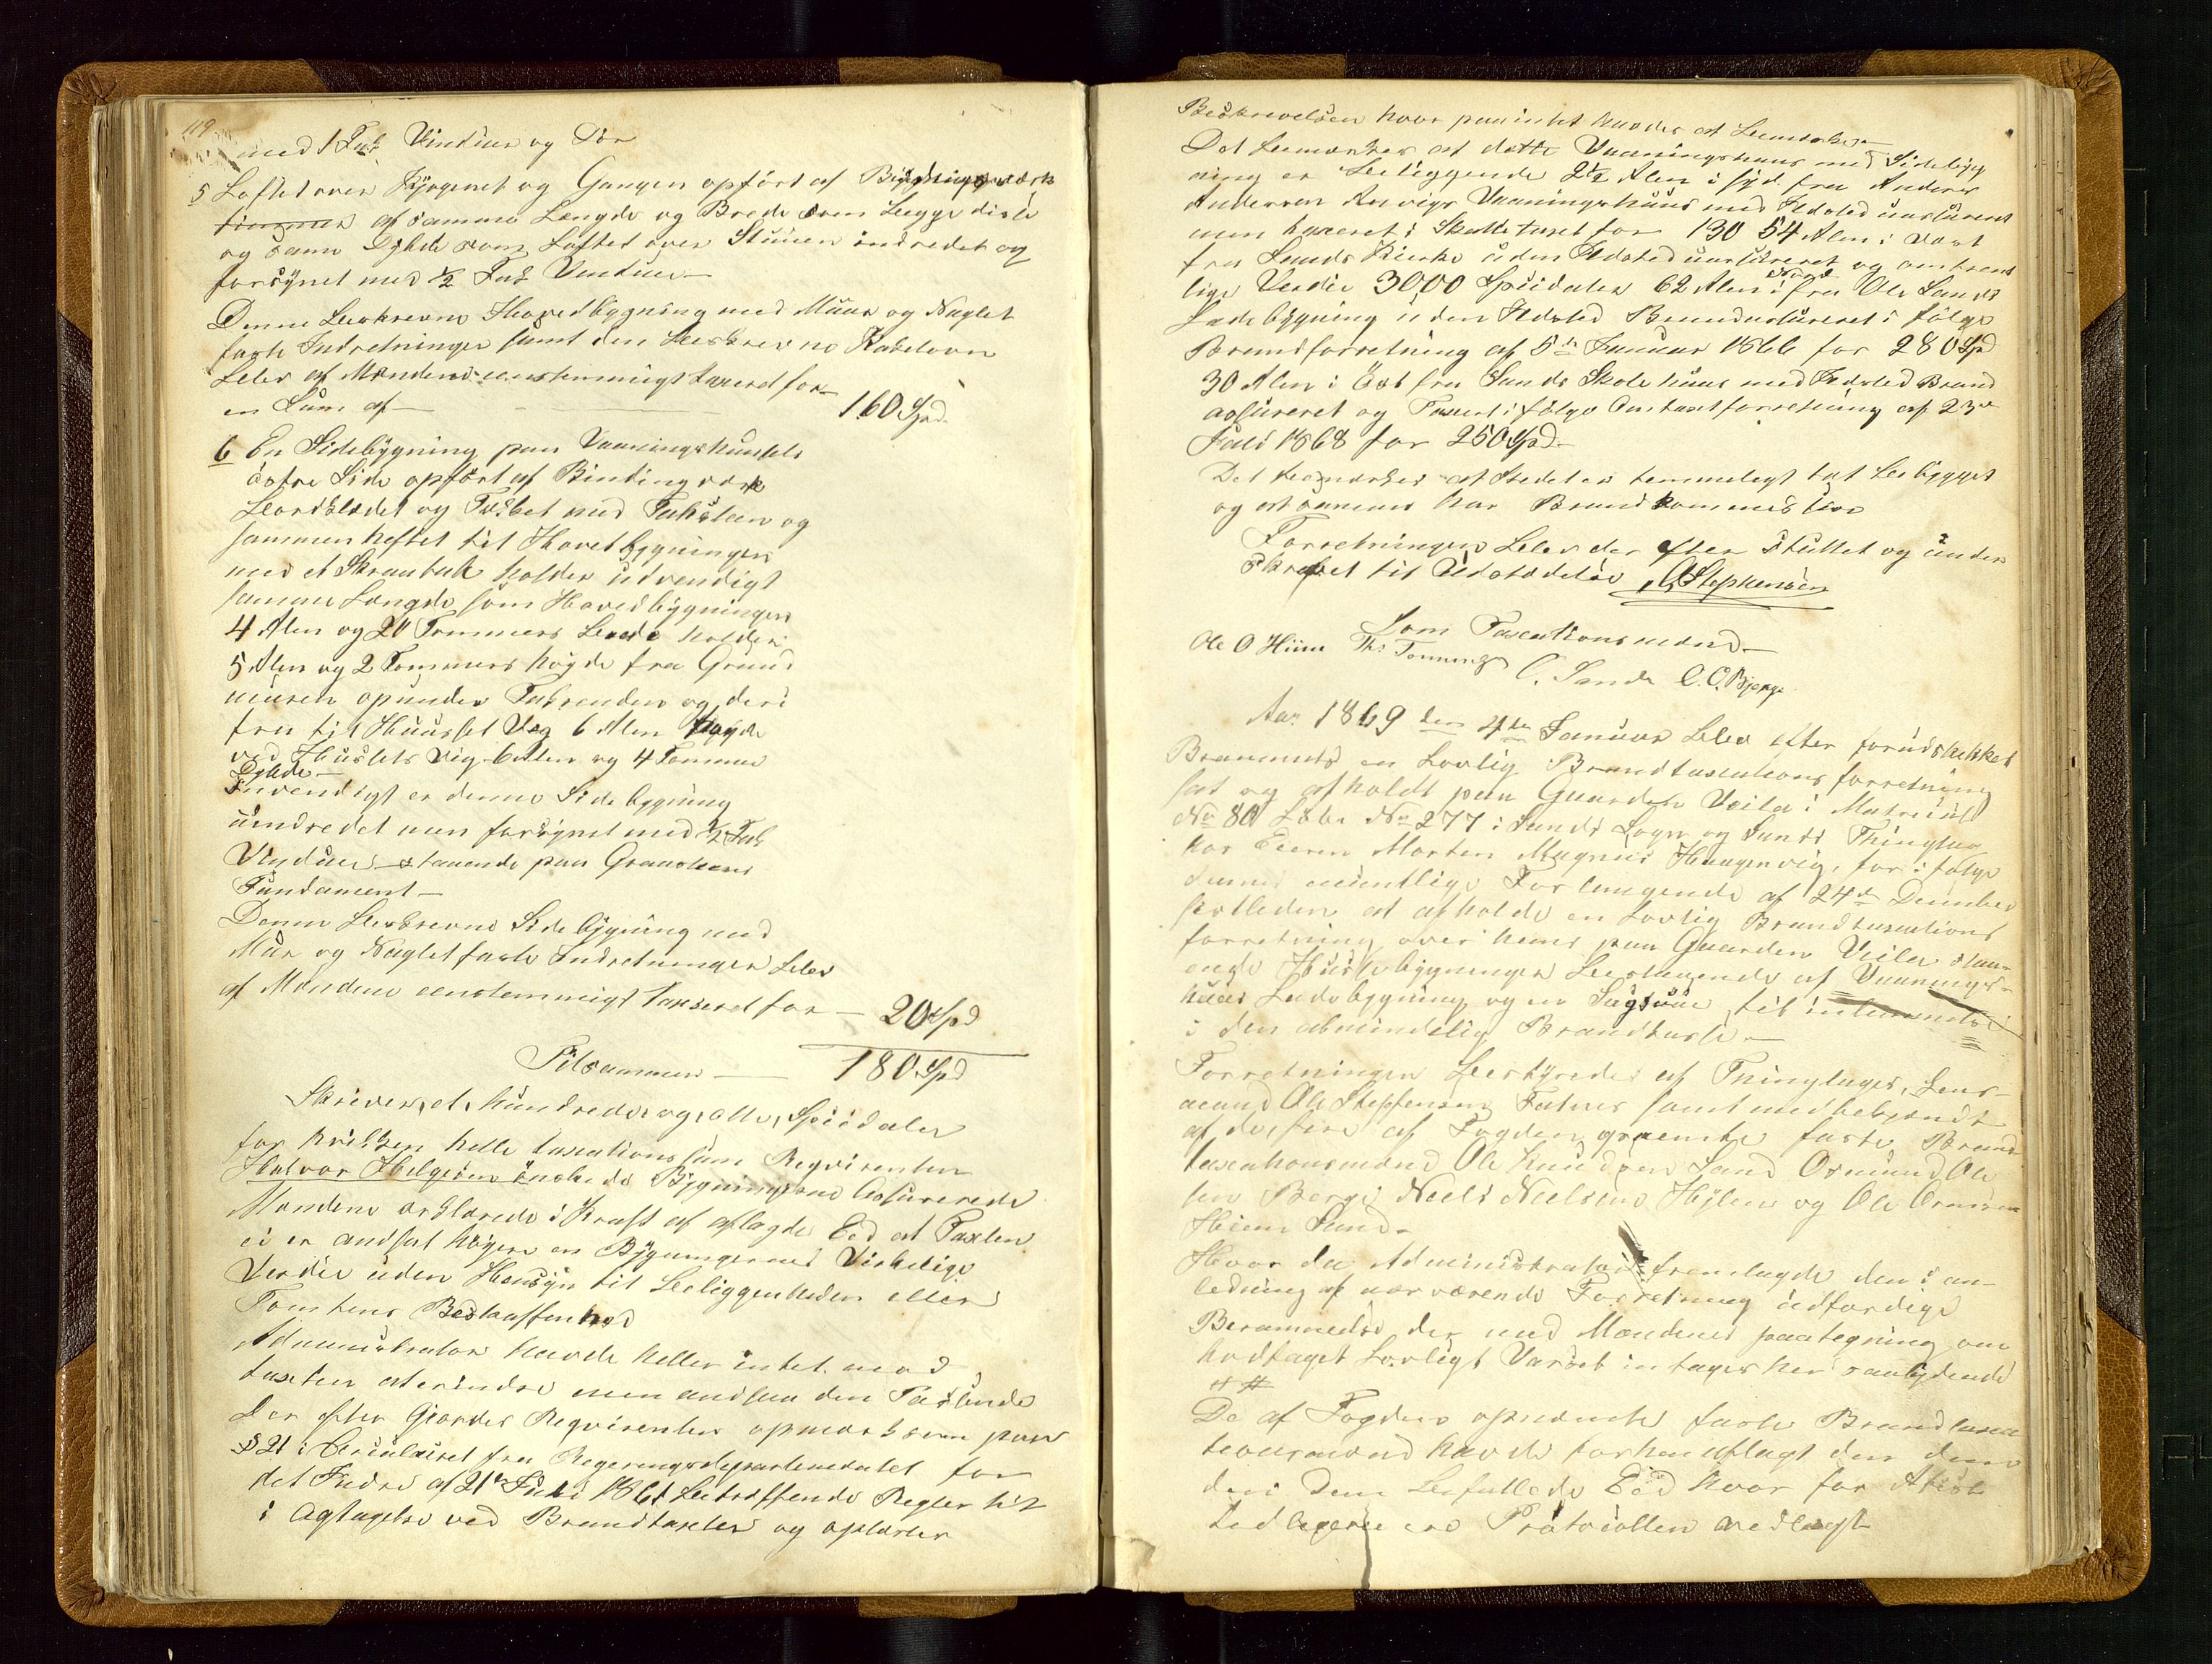 119
med 1 Fak Vindue og Dør
5 Loftet over Kjøgenet og Gangen opført af Bygningsværk
af samme Længde og Brede som
og samme Dybde som Loftet over Stuen indredet og
forsynet med 1/2 Fak Vindue
Denne beskrevne Hovedbygning med Muur og Naglet
faste Indretninger samt den beskrevne Kakelovn
blev af Mændene eenstemmigt taxeret for
en Sum af — 160 Spd.
6 En Sidebygning paa Vaaningshusets
østre Side opført af Bindingsværk
bordklædet og Tækket med Taksteen og
sammenheftet til Hovedbygningen
med et Skraatak holder udvendigt
samme Længde som Hovedbygningen
4 Alen og 20 Tommers Brede holder
5 Alen og 2 Tommers høyde fra Grund
muren op under Takrenden og der i
fra til Husets Væg 6 Alen høyde
ved Husets Væg 6 Alen og 4 Tommer
Dybde —
Indvendigt er denne Sidebygning
uindredet men forsynet med 1/2 Fak
Vinduer staaende paa Graasteens
Fundament —
Denne beskrevne Sidebygning med
Mur og Nagletfaste Indretninger blev
af Mændene eenstemmigt taxeret for — 20 Spd
Tilsammen — 180 Spd
Skriver, et, hundrede, og, otte, Spesidaler
for hvilken hele taxationssum Reqvirenten
Halvor Helgesen ønskede Bygningerne Assurerede
Mændene erklærede i Kraft af aflagde Eed at Taxten
ei er andsat høyere en Bygningernes Virkelige
Verdie uden Hensyn til Beliggenheden eller
Tomtens Beskaffenhed
Administrator havde heller intet mod
taxten at erindre men andsaa den Passende
Der efter Gjordes Reqvirenten opmærksom paa
§ 21 i Circulairet fra Regjeringsdepartementet for
det Indre af 21de Juli 1861 betreffende Regler til
i agtagelse ved Brandtaxter og oplæser
Beskrevelsen hvor paa intet havdes at bemærke —
Det bemærkes at dette Vaaningshuus med Sidebyg
ning er beliggende 2 1/2 Alen i syd fra Anders
Andersen Røsvigs Vaaningshuus med Ildsted uassureret
men taxeret i Skattetaxt for 130 54 Alen i Vest
fra Sands Kirke uden Ildsted uassureret og omtrent
lige Verdie 3000 Spesidaler 62 Alen i Nord fra Ole Sands
Ladebygning uden Ildsted Brandassureret i følge
Brandforretning af 5te Januar 1866 for 280 Spd
30 Alen i Øst fra Sands Skolehuus med Ildsted Brand
assureret og Taxert i følge Omtaxtforretning af 23de
Juli 1868 for 250 Spd.
Det bemærkes at Stedet er temmeligt tæt bebygget
og at samme har Brandkommission
Forretningen blev der efter sluttet og under
skrevet til Udstedelse O Stephensen
Som Taxationsmænd —
Ole O Hiim Ths. Tonning O. Sande O. O. Bjerge
Aar 1869 den 4de Januar blev efter forudskikket
Berammelse en Lovlig Brandtaxationsforretning
sat og afholdt paa Gaarden Veila i Matricul
No 80 Løbe No 277 i Sands Sogn og Sands Thinglag
hos Eieren Morten Magnus Haugenvig, for i følge
dennes mundtlige Forlangende af 24de December
sidstleden at afholde en Lovlig Brandtaxations
forretning over hans paa Gaarden Veila staa-
ende Huusbygninger bestaaende af Vaanings-
huus Ladebygning og en Sagstue til
i den almindelig Brandkasse. —
Forretningen bestyredes af Thinglagets, Lens-
mand Ole Stephensen Fatnes samt medbetjendt
af de, fire af Fogden opnævnte faste Brand
taxationsmænd Ole Knudsen Sand Osmund Ole
sen Berge Neels Neelsens Hylen og Ole Ormsen
Hiim Sand.
Hvor da Administrator fremlagde den i an-
ledning af nærværende Forretning udfærdige
Berammelse der med Mændenes paategning om
hvdtaget Lovligt Varsel intages her saalydende
# #
De af Fogden opnævnte faste Brandtaxa
tionsmænd havde forhen aflagt den dem
den Dem befallede Eed hvor for Attest
tidligere ere Protocollen vedlagt